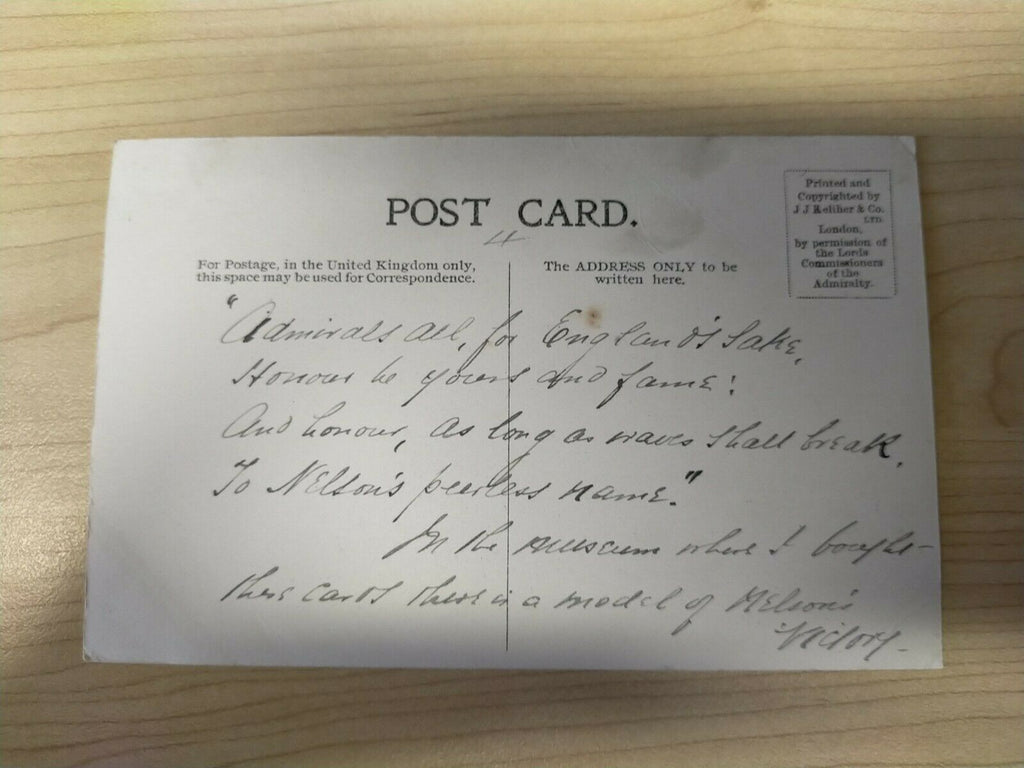 POST CARD.
4
For Postage, in the United Kingdom only,
this space may be used for Correspondence.
The ADDRESS ONLY to be
written here.
Printed and
Copyrighted by
J J Keliher & Co.
LTD.
London,
by permission of
the Lords
Commissioners
of the
Admiralty.
"Admirals all, for England's sake,
Honour be yours and fame!
And honour, as long as waves shall break,
To Nelson's peerless name."
In the museum where I bought
these cards there is a model of Nelson's
Victory.